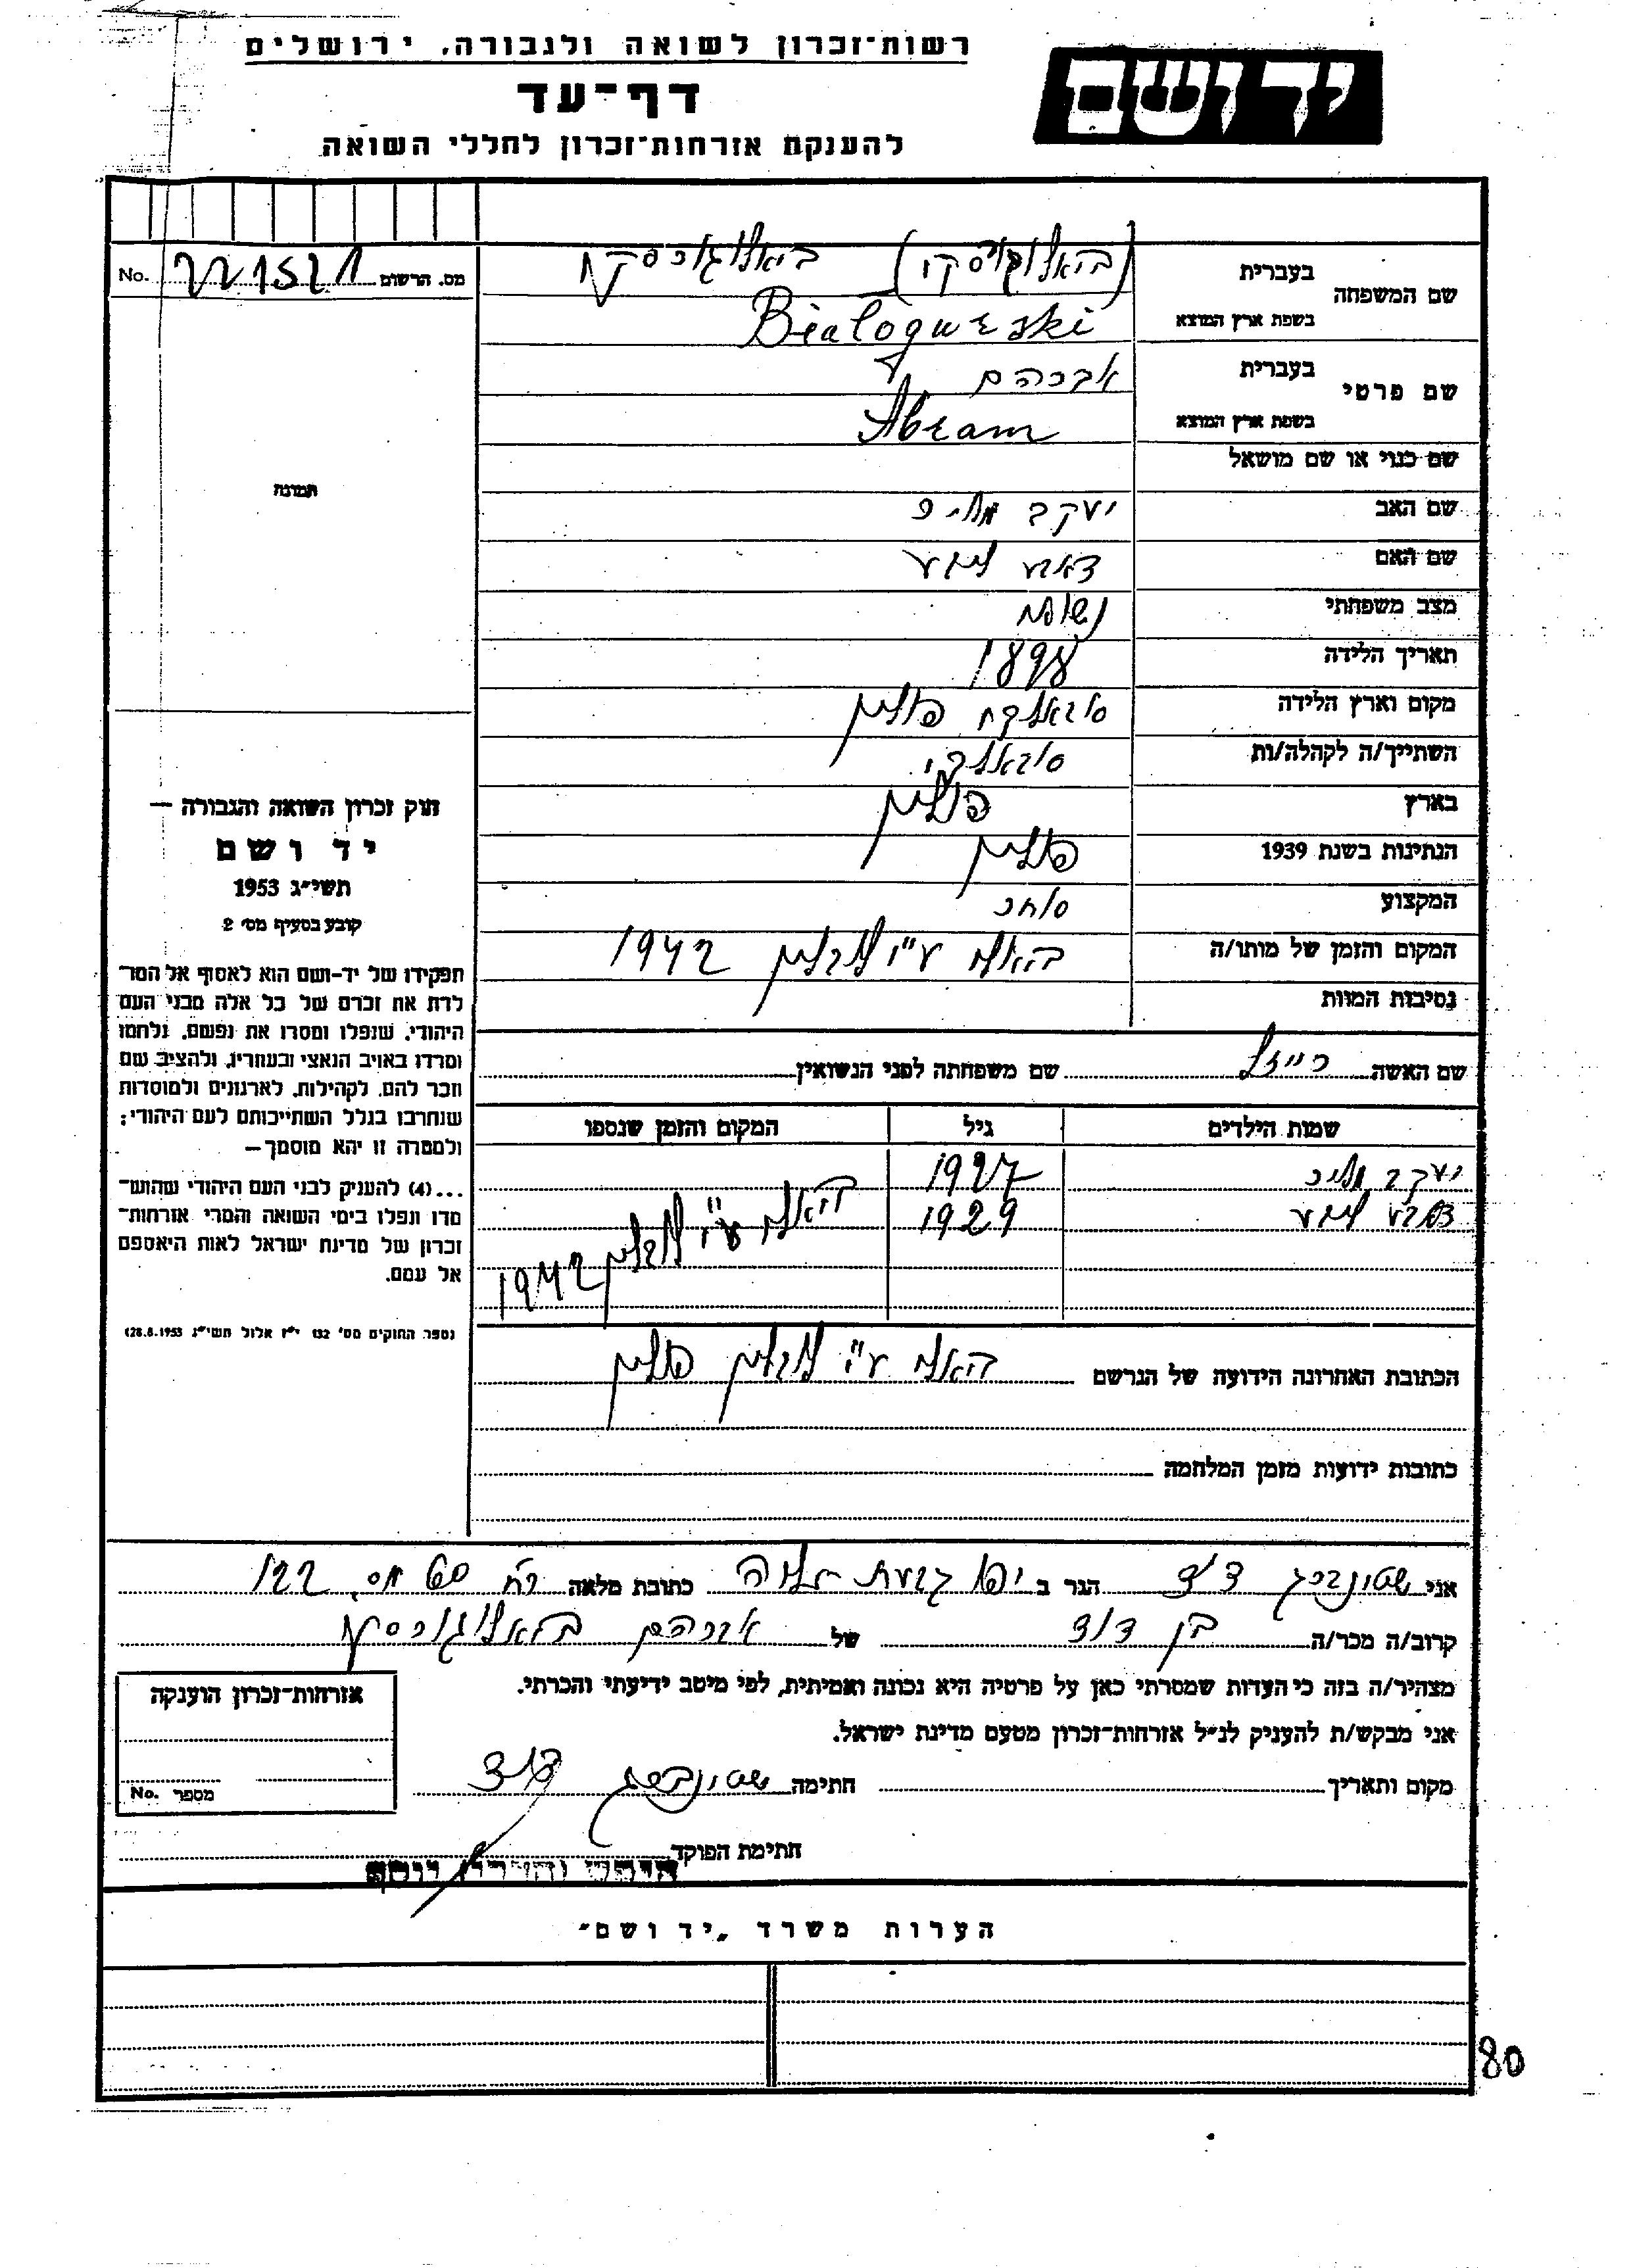 רשות־זכרון לשואה ולגבורה, ירושלים
יד ושם
דף־עד
להענקת אזרחות־זכרון לחללי השואה
מס. הרשום No.
שם המשפחה
בעברית
בשפת ארץ המוצא Bialogurski
שם פרטי
בעברית אברהם
בשפת ארץ המוצא Abram
שם כנוי או שם מושאל
תמונה
שם האב יעקב מאיר
שם האם
מצב משפחתי נשוי
תאריך הלידה 1898
מקום וארץ הלידה סובאלקי פולין
השתייך/ה לקהלה/ות סובאלקי
בארץ פולין
הנתינות בשנת 1939 פולין
המקצוע סוחר
המקום והזמן של מותו/ה ביאלה ע"י לובלין 1942
נסיבות המוות
חוק זכרון השואה והגבורה —
יד ושם
תשי״ג 1953
קובע בסעיף מס׳ 2
תפקידו של יד-ושם הוא לאסוף אל המו־
לדת את זכרם של כל אלה מבני העם
היהודי, שנפלו ומסרו את נפשם, נלחמו
ומרדו באויב הנאצי ובעוזריו, ולהציב שם
וזכר להם, לקהילות, לארגונים ולמוסדות
שנחרבו בגלל השתייכותם לעם היהודי;
ולמטרה זו יהא מוסמך—
...(4) להעניק לבני העם היהודי שהוש־
מדו ונפלו בימי השואה והמרי אזרחות־
זכרון של מדינת ישראל לאות היאספם
אל עמם.
(ספר החוקים מס׳ 132 י״ז אלול תשי״ג 28.8.1953)
שם האשה רייזל שם משפחתה לפני הנשואין
שמות הילדים גיל המקום והזמן שנספו
יעקב מאיר 1927
1929
ביאלה ע"י לובלין 1942
הכתובת האחרונה הידועה של הנרשם ביאלה ע"י לובלין פולין
כתובות ידועות מזמן המלחמה
אני שטונברג דוד הגר ב יפו גבעת עליה כתובת מלאה רח 60 מס. 122
קרוב/ה מכר/ה בן דוד של אברהם
מצהיר/ה בזה כי העדות שמסרתי כאן על פרטיה היא נכונה ואמיתית, לפי מיטב ידיעתי והכרתי.
אני מבקש/ת להעניק לנ״ל אזרחות־זכרון מטעם מדינת ישראל.
מקום ותאריך חתימה שטונברג דוד
חתימת הפוקד
אזרחות־זכרון הוענקה
מספר No.
הערות משרד „יד ושם״
80